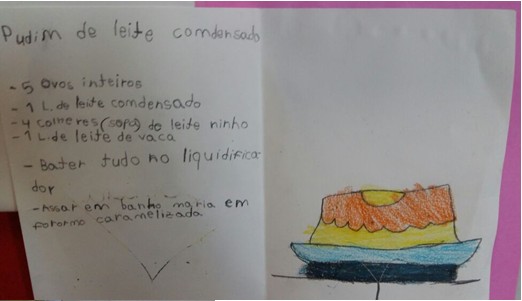 Pudim de leite comdensado
- 5 ovos inteiros
- 1 L. de leite comdensado
- 4 colheres (sopa) de leite ninho
- 1 L. de leite de vaca
- Bater tudo no liquidifica
dor
- Assar em banho maria em
forormo caramelieada